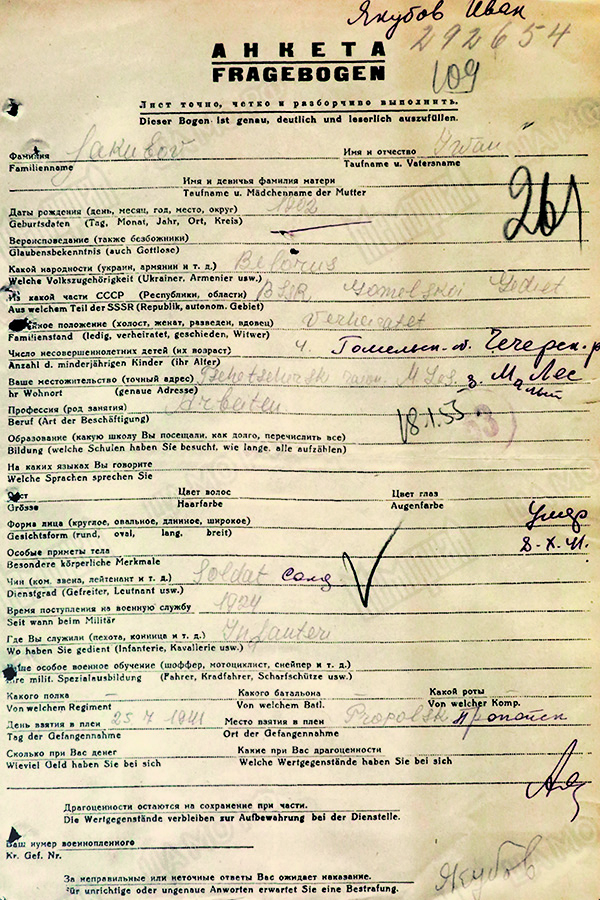 Якубов Иван
292654
АНКЕТА
FRAGEBOGEN
109
Лист точно, четко и разборчиво выполнить.
Dieser Bogen ist genau, deutlich und leserlich auszufüllen.
Фамилия Jakubov Имя и отчество Iwan
Familienname Taufname u. Vatersname
Имя и девичья фамилия матери
Taufname u. Mädchenname der Mutter
261
Даты рождения (день, месяц, год, место, округ) 1902
Geburtsdaten (Tag, Monat, Jahr, Ort, Kreis)
Вероисповедание (также безбожники)
Glaubensbekenntnis (auch Gottlose)
Какой народности (украин, армянин и т. д.) Belorus
Welche Volkszugehörigkeit (Ukrainer, Armenier usw.)
Из какой части СССР (Республики, области) BSSR Gomelskoi Gebiet
Aus welchem Teil der SSSR (Republik, autonom. Gebiet)
йное положение (холост, женат, разведен, вдовец) Verheiratet
Familienstand (ledig, verheiratet, geschieden, Witwer)
Число несовершеннолетних детей (их возраст) 4 Гомельск. о. Чечерск. р
Anzahl d. minderjährigen Kinder (ihr Alter)
Ваше местожительство (точный адрес) д. Малый Лес
hr Wohnort (genaue Adresse)
Профессия (род занятия) Arbeiten
Beruf (Art der Beschäftigung)
18.1.55
Образование (какую школу Вы посещали, как долго, перечислить все)
Bildung (welche Schulen haben Sie besucht, wie lange, alle aufzählen)
На каких языках Вы говорите
Welche Sprachen sprechen Sie
Рост Цвет волос Цвет глаз
Grösse Haarfarbe Augenfarbe
Форма лица (круглое, овальное, длинное, широкое)
Gesichtsform (rund, oval, lang, breit)
Умер
8-X-41.
Особые приметы тела
Besondere körperliche Merkmale
Чин (ком. звена, лейтенант и т. д.) Soldat солд
Dienstgrad (Gefreiter, Leutnant usw.)
Время поступления на военную службу 1924
Seit wann beim Militär
Где Вы служили (пехота, конница и т. д.) Infanteri
Wo haben Sie gedient (Infanterie, Kavallerie usw.)
особое военное обучение (шоффер, мотоциклист, снейпер и т. д.)
Ihre milit. Spezialausbildung (Fahrer, Kradfahrer, Scharfschütze usw.)
Какого полка Какого батальона Какой роты
Von welchem Regiment Von welchem Batl. Von welcher Komp.
День взятия в плен 25 7 1941 Место взятия в плен Propolsk Пропойск
Tag der Gefangennahme Ort der Gefangennahme
Сколько при Вас денег Какие при Вас драгоценности
Wieviel Geld haben Sie bei sich Welche Wertgegenstände haben Sie bei sich
Драгоценности остаются на сохранение при части.
Die Wertgegenstände verbleiben zur Aufbewahrung bei der Dienstelle.
Ваш нумер военнопленного
Kr. Gef. Nr.
Якубов
За неправильные или неточные ответы Вас ожидает наказание.
Für unrichtige oder ungenaue Anworten erwartet Sie eine Bestrafung.